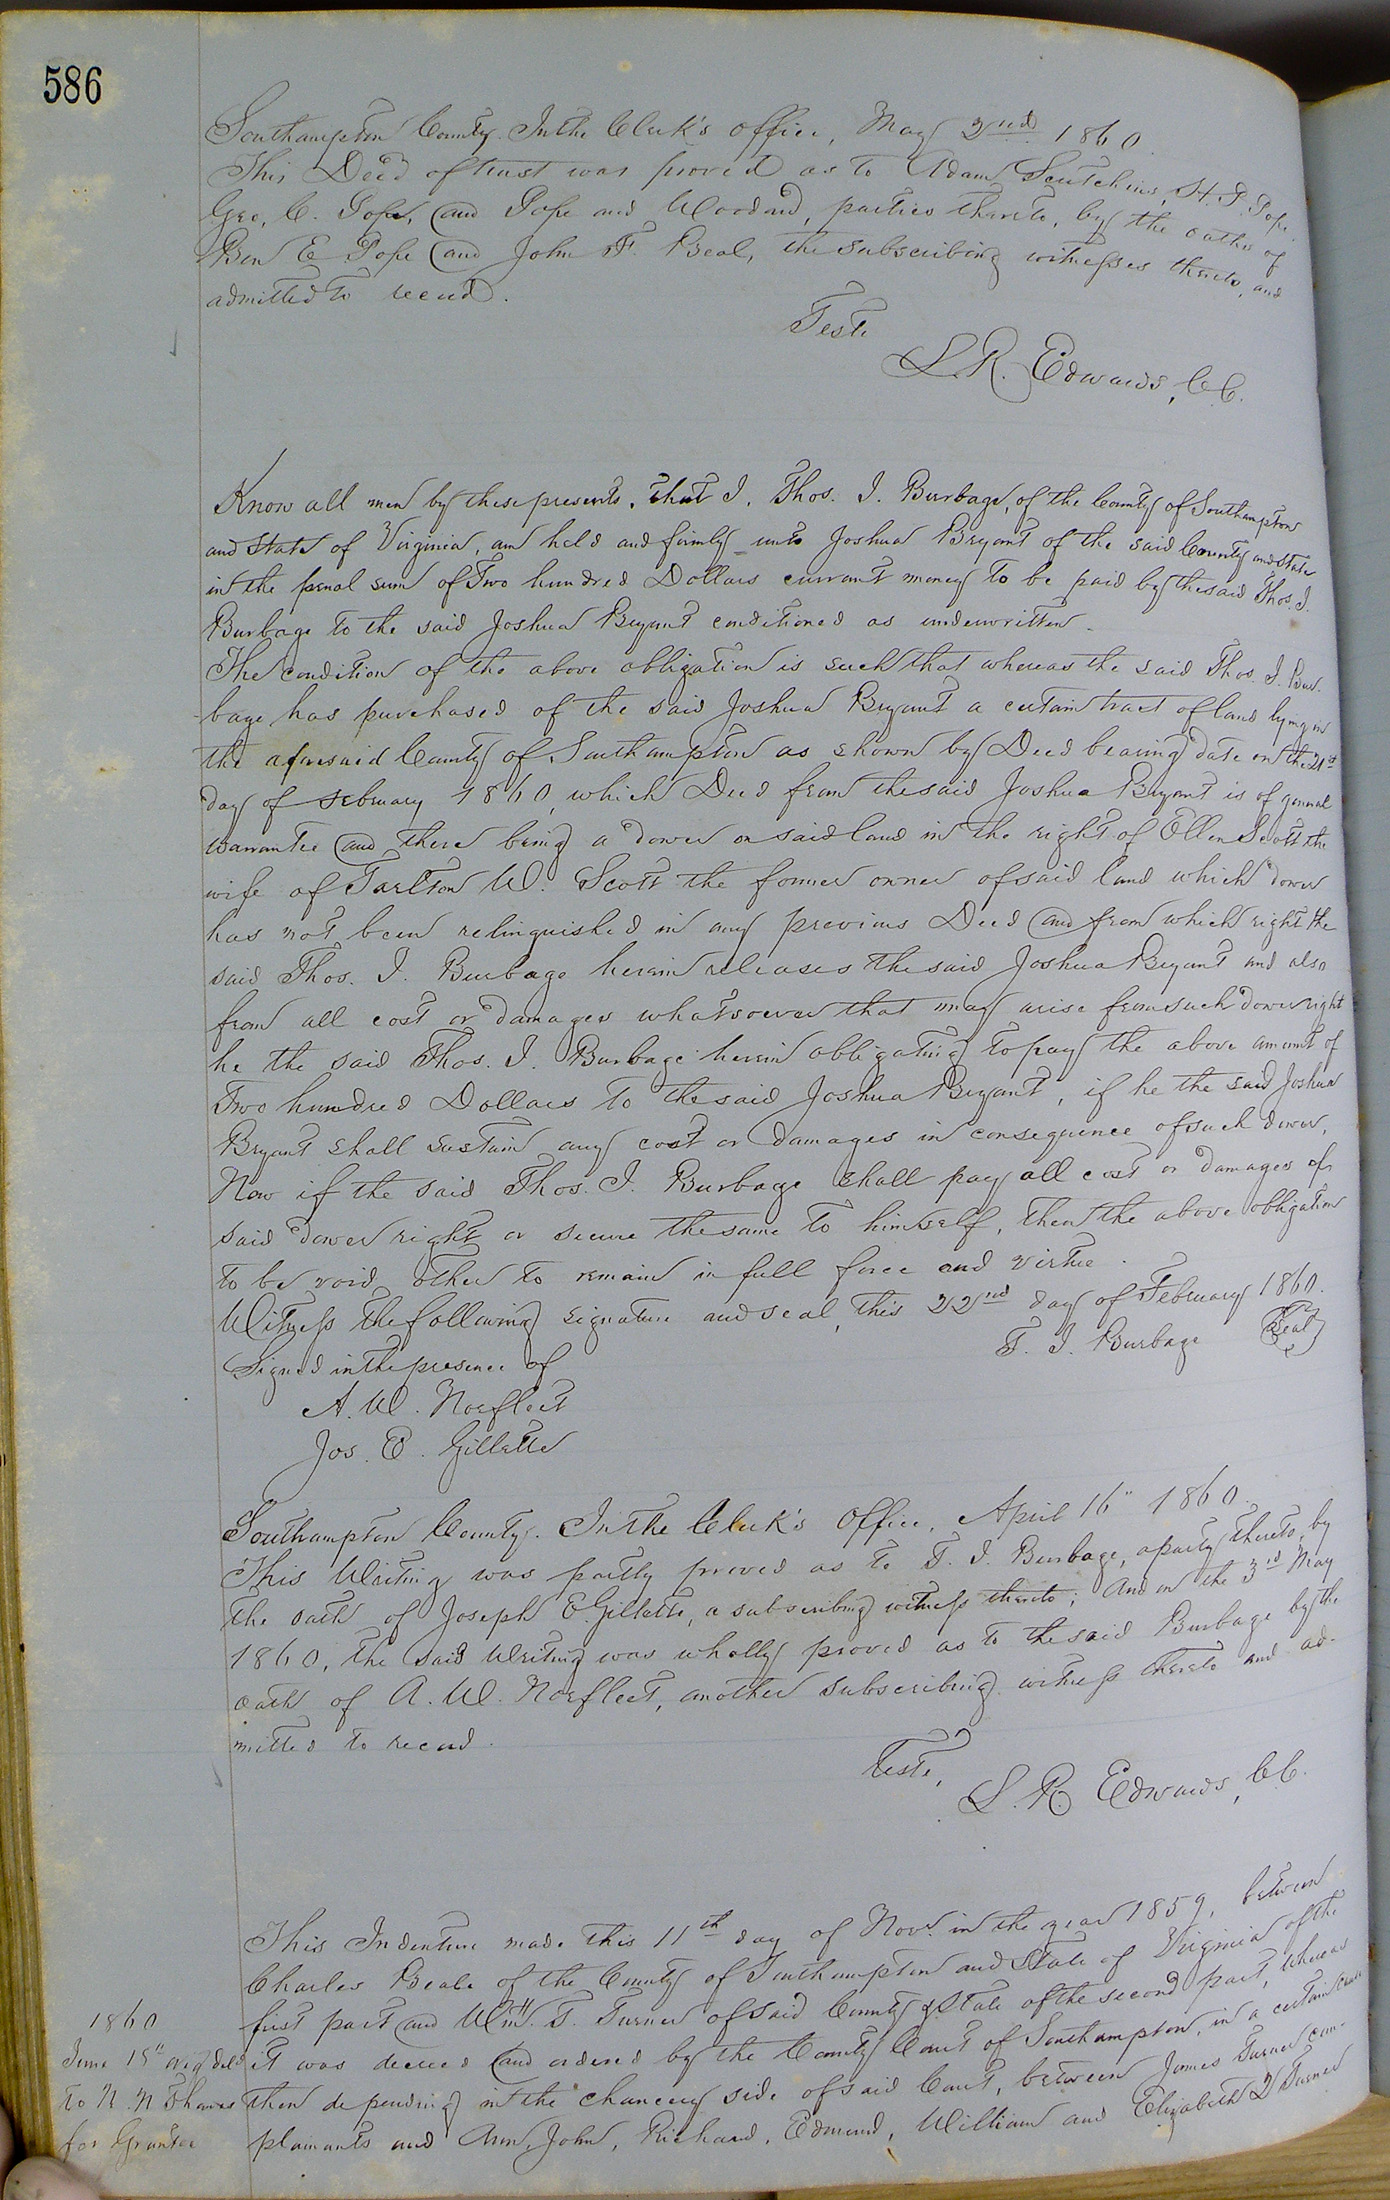 586
Southampton County. In the Clerk's office, May 2nd 1860.
This Deed of trust was proved as to Adam Scutchins, H. P. Pope
Geo. C. Pope, and Pope and Woodard, parties thereto, by the oaths of
Ben E Pope and John F. Beal, the subscribing witnesses thereto, and
admitted to record.
Teste
L. R. Edwards, C.C.
Know all men by these presents, that I, Thos. I. Burbage, of the County of Southampton
and State of Virginia, am held and firmly unto Joshua Bryant of the said County and State
in the penal sum of Two hundred Dollars currant money to be paid by the said Thos. I.
Burbage to the said Joshua Bryant conditioned as underwritten.
The condition of the above obligation is such that whereas the said Thos. I. Bur-
bage has purchased of the said Joshua Bryant a certain tract of land lying in
the aforesaid County of Southampton as shown by Deed bearing date on the 21st
day of February 1860, which Deed from the said Joshua Bryant is of general
warrantee and there being a dower on said land in the right of Ellen Scott the
wife of Tarlton W. Scott the former owner of said land which dower
has not been relinquished in any previous Deed and from which right the
said Thos. I. Burbage herein releases the said Joshua Bryant and also
from all cost or damages whatsoever that may arise from such dower right
he the said Thos. I. Burbage herein obligating to pay the above amount of
Two hundred Dollars to the said Joshua Bryant, if he the said Joshua
Bryant shall sustain any cost or damages in consequence of such dower,
Now if the said Thos. I. Burbage shall pay all cost or damages of
said dower right or secure the same to himself, then the above obligation
to be void other to remain in full force and virtue.
Witness the following signature and seal, this 22nd day of February 1860.
Signed in the presence of T. I. Burbage Seal
A. W. Norfleet
Jos. E. Gillette
Southampton County. In the Clerk's Office, April 16" 1860.
This Writing was partly proved as to T. I. Burbage, a party thereto, by
the oath of Joseph E Gillette, a subscribing witness thereto; And on the 3rd May
1860, the said Writing was wholly proved as to the said Burbage by the
oath of A. W. Norfleet, another subscribing witness thereto and ad-
mitted to record.
Teste,
L. R. Edwards, C.C.
This Indenture made this 11th day of Nov. in the year 1859, between
Charles Beale of the County of Southampton and State of Virginia of the
first part and Wm. T. Turner of said County & State of the second part, whereas
it was decreed and ordered by the County Court of Southampton, in a certain cause
then depending in the chancery side of said Court, between James Turner com-
plainants and Ann, John, Richard, Edmund, William and Elizabeth Turner
1860
June 15th orig deld
to N. N Thomas
for Grantee